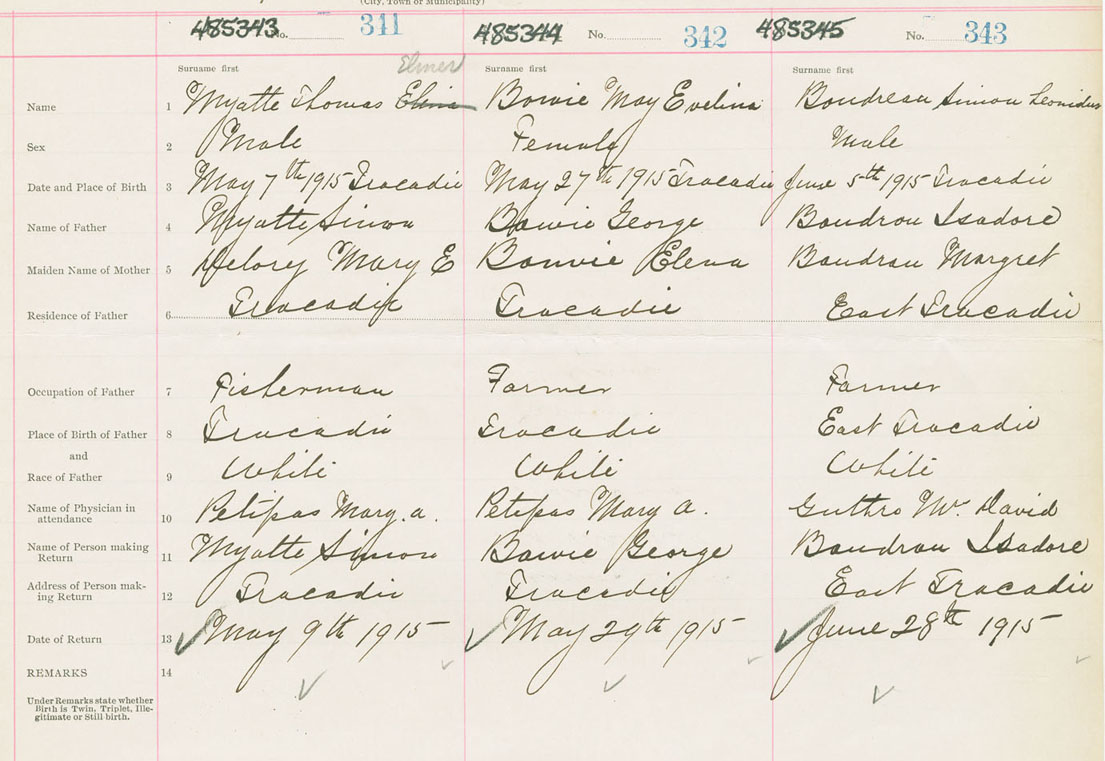 (City, Town or Municipality)
485343 No. 341 485344 No. 342 485345 No. 343
Elmer
Surname first Surname first Surname first
Name 1 Myatte Thomas Bowie May Evelina Boudreau Simon Leonidus
Sex 2 Male Female Male
Date and Place of Birth 3 May 7th 1915 Tracadie May 27th 1915 Tracadie June 5th 1915 Tracadie
Name of Father 4 Myatte Simon Bowie George Boudrou Isadore
Maiden Name of Mother 5 Delorey Mary E Bowie Elena Boudrau Margret
Residence of Father 6 Tracadie Tracadie East Tracadie
Occupation of Father 7 Fisherman Farmer Farmer
Place of Birth of Father 8 Tracadie Tracadie East Tracadie
and
Race of Father 9 White White White
Name of Physician in
attendance 10 Petipas Mary. a. Petipas Mary a. Guthro Mr. David
Name of Person making
Return 11 Myatte Simon Bowie George Boudrau Isadore
Address of Person mak-
ing Return 12 Tracadie Tracadie East Tracadie
Date of Return 13 May 9th 1915 May 29th 1915 June 28th 1915
REMARKS 14
Under Remarks state whether
Birth is Twin, Triplet, Ille-
gitimate or Still birth.